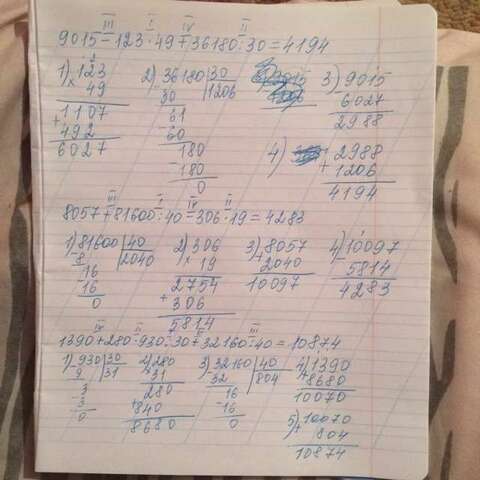 III I IV II
9015 - 123 · 49 + 36180 : 30 = 4194
1) 123 2) 36180 | 30 3) 9015
× 49 30 1206 6027
1107 61 2988
+ 492 - 60
6027 180 4) 2988
- 180 + 1206
0 4194
III I IV II
8057 + 81600 : 40 - 306 · 19 = 4283
1) 81600 | 40 2) 306 3) 8057 4) 10097
- 8 2040 × 19 + 2040 - 5814
16 2754 10097 4283
- 16 + 306
0 5814
IV II I V III
1390 + 280 · 930 : 30 + 32160 : 40 = 10874
1) 930 | 30 2) 280 3) 32160 | 40 4) 1390
- 9 31 × 31 32 804 + 8680
3 280 16 10070
- 3 + 840 - 16
0 8680 0 5) 10070
+ 804
10874